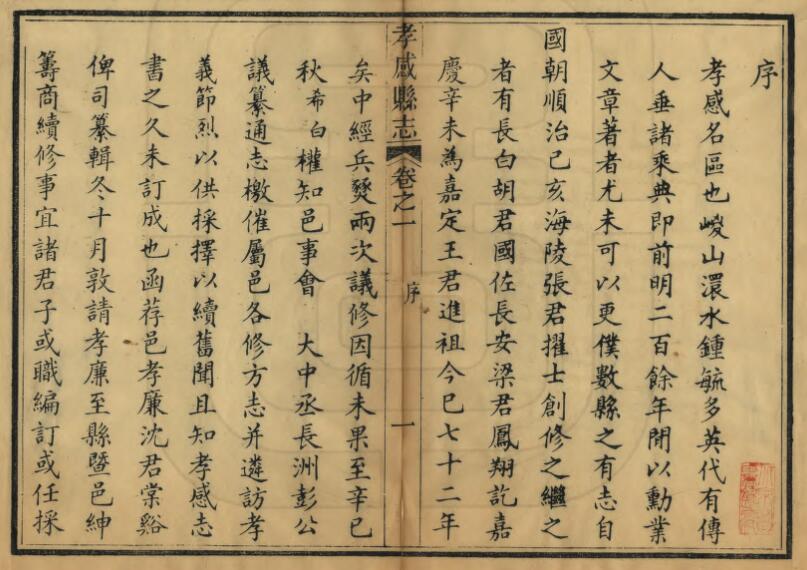 序
孝感名區也崚山澴水鍾毓多英代有傳
人垂諸乘典即前明二百餘年間以勳業
文章著者尤未可以更僕數縣之有志自
國朝順治己亥海陵張君擢士創修之繼之
者有長白胡君國佐長安梁君鳳翔訖嘉
慶辛未為嘉定王君進祖今已七十二年
孝感縣志
卷之一
序
一
矣中經兵燹兩次議修因循未果至辛巳
秋希白權知邑事會 大中丞長洲彭公
議纂通志檄催屬邑各修方志并遴訪孝
義節烈以供採擇以續舊聞且知孝感志
書之久未訂成也函荐邑孝廉沈君棠谿
俾司纂輯冬十月敦請孝廉至縣暨邑紳
籌商續修事宜諸君子或職編訂或任採